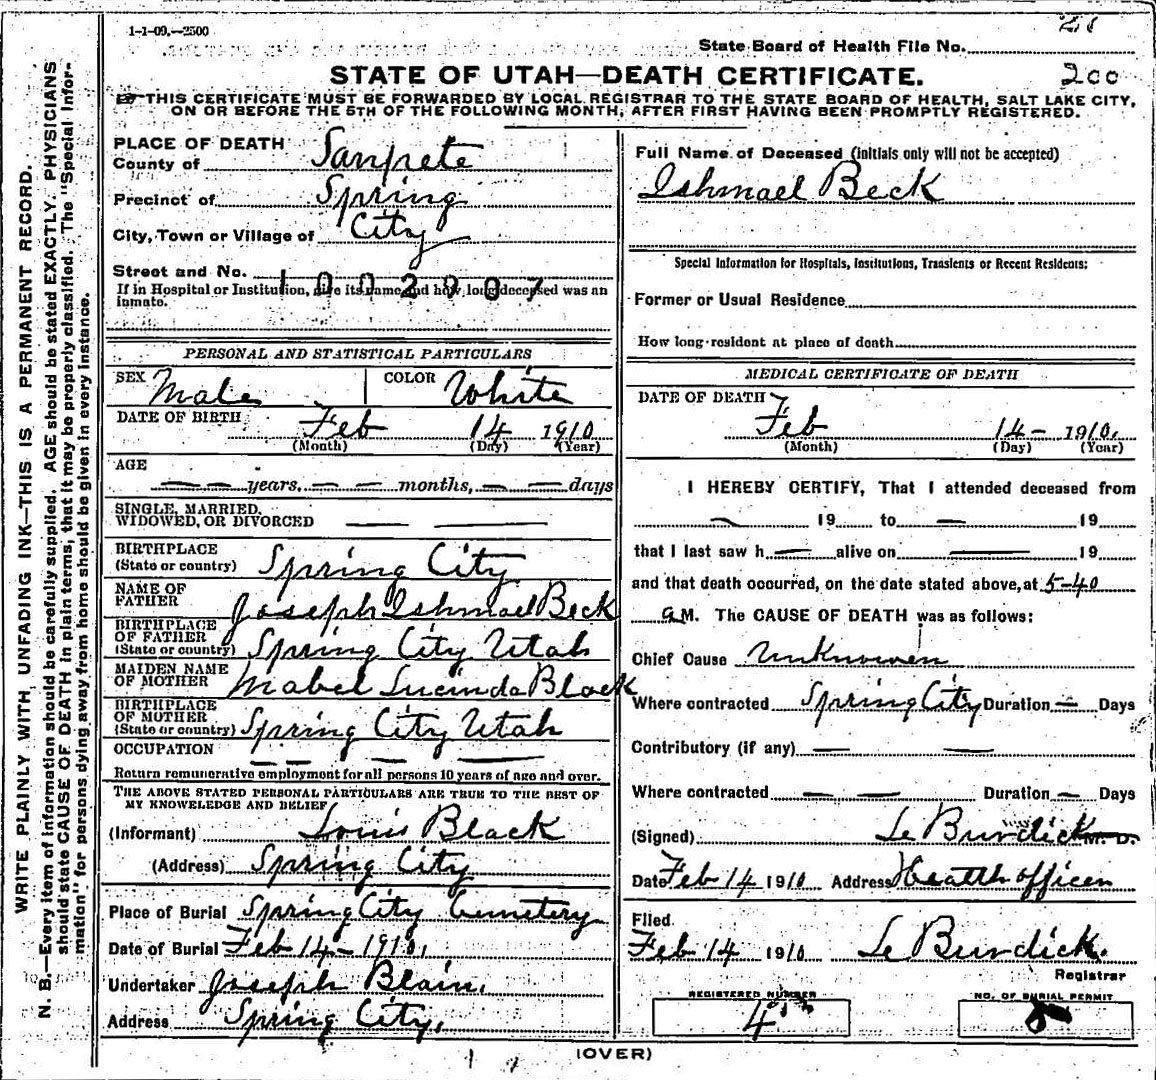 1-1-09.—2500
State Board of Health File No.
STATE OF UTAH—DEATH CERTIFICATE.
200
THIS CERTIFICATE MUST BE FORWARDED BY LOCAL REGISTRAR TO THE STATE BOARD OF HEALTH, SALT LAKE CITY,
ON OR BEFORE THE 5TH OF THE FOLLOWING MONTH, AFTER FIRST HAVING BEEN PROMPTLY REGISTERED.
WRITE PLAINLY WITH UNFADING INK—THIS IS A PERMANENT RECORD.
N. B.—Every item of information should be carefully supplied. AGE should be stated EXACTLY. PHYSICIANS
should state CAUSE OF DEATH in plain terms, that it may be properly classified. The "Special Infor-
mation" for persons dying away from home should be given in every instance.
PLACE OF DEATH
County of Sanpete
Precinct of Spring
City, Town or Village of City
Street and No.
1002007
If in Hospital or Institution, give its name and how long deceased was an
inmate.
PERSONAL AND STATISTICAL PARTICULARS
SEX Male COLOR White
DATE OF BIRTH Feb 14 1910
(Month) (Day) (Year)
AGE
— — years, — — months, — — days
SINGLE, MARRIED,
WIDOWED, OR DIVORCED — —
BIRTHPLACE
(State or country) Spring City
NAME OF
FATHER Joseph Ishmael Beck
BIRTHPLACE
OF FATHER
(State or country) Spring City Utah
MAIDEN NAME
OF MOTHER Mabel Lucinda Black
BIRTHPLACE
OF MOTHER
(State or country) Spring City Utah
OCCUPATION — — — —
Return remunerative employment for all persons 10 years of age and over.
THE ABOVE STATED PERSONAL PARTICULARS ARE TRUE TO THE BEST OF
MY KNOWLEDGE AND BELIEF
(Informant) Louis Black
(Address) Spring City
Place of Burial Spring City Cemetery
Date of Burial Feb 14-1910,
Undertaker Joseph Blain,
Address Spring City,
Full Name of Deceased (initials only will not be accepted)
Ishmael Beck
Special Information for Hospitals, Institutions, Transients or Recent Residents:
Former or Usual Residence
How long resident at place of death
MEDICAL CERTIFICATE OF DEATH
DATE OF DEATH
Feb 14- 1910.
(Month) (Day) (Year)
I HEREBY CERTIFY, That I attended deceased from
— 19 to — 19
that I last saw h — alive on — 19
and that death occurred, on the date stated above, at 5-40
a M. The CAUSE OF DEATH was as follows:
Chief Cause Unknowen
Where contracted Spring City Duration — Days
Contributory (if any) — —
Where contracted — — Duration — Days
(Signed) Le Burdick M. D.
Date Feb 14 1910 Address Heatth officer
Filed
Feb 14 1910 Le Burdick.
Registrar
REGISTERED NUMBER
4
NO. OF BURIAL PERMIT
(OVER)